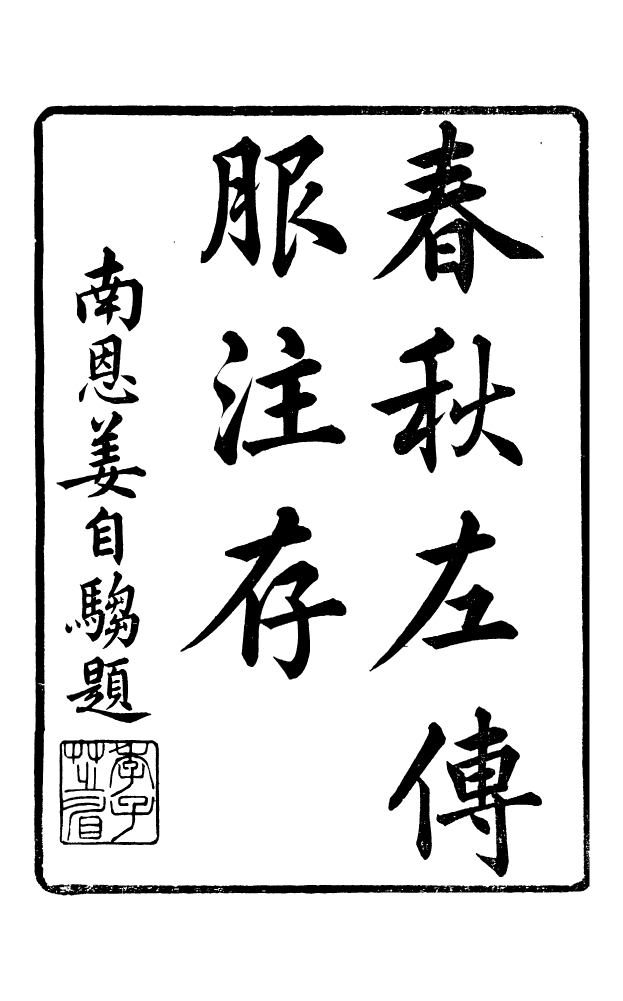 春秋左傳
服注存
南恩姜自騶題